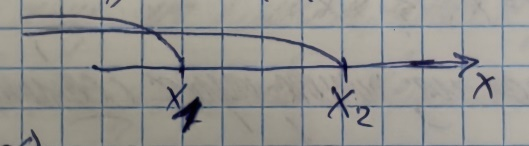 x₁ x₂ x